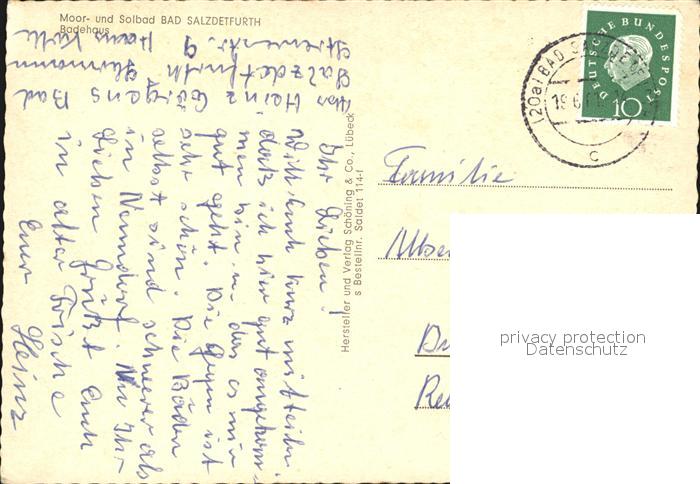 Moor- und Solbad BAD SALZDETFURTH
Badehaus
Abs Heinz Görgens Bad
Salzdetfurth
9 Haus
Ihr Lieben!
Will Euch kurz mitteilen
dass ich hier gut angekom-
men bin u. das es mir
gut geht. Die Gegen ist
sehr schön. Die Bäder
selbst sind schwerer als
in Nenndorf. Nu Ihr
Lieben grüßt Euch
in alter Frische
Euer
Heinz
Hersteller und Verlag Schöning & Co., Lübeck
s Bestellnr. Saldet 114-f
DEUTSCHE BUNDESPOST
10
(20a) BAD SALZDETF
19.6.
c
Familie
privacy protection
Datenschutz